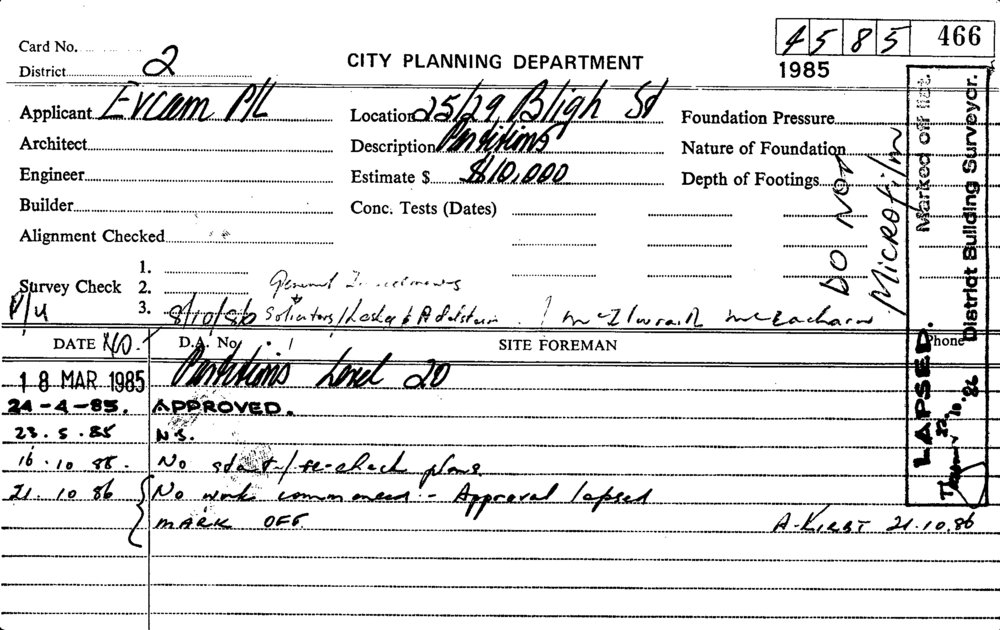 4585 466
Card No.
CITY PLANNING DEPARTMENT
District 2
1985
Applicant Evcam P/L
Location 25/29 Bligh St
Foundation Pressure
Architect
Description Partitions
Nature of Foundation
Engineer
Estimate $ $10,000
Depth of Footings
Builder
Conc. Tests (Dates)
Alignment Checked
DO NOT
Microfilm
Marked off list.
District Building Surveyor.
LAPSED.
22.10.86
1.
Survey Check 2. General
P/U 3. 8/10/86 Solicitors / McIlwraith McEacharn
DATE D.A. No. SITE FOREMAN Phone
18 MAR 1985 Partitions Level 20
24-4-85. APPROVED.
23.5.85 N.S.
16.10.85. No start / re-check plans
21.10.86 No work commenced - Approval lapsed
MARK OFF A-KIRBY 21.10.86